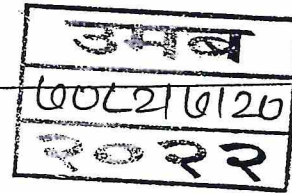 उमब
७०८२|७|२०
२०२२